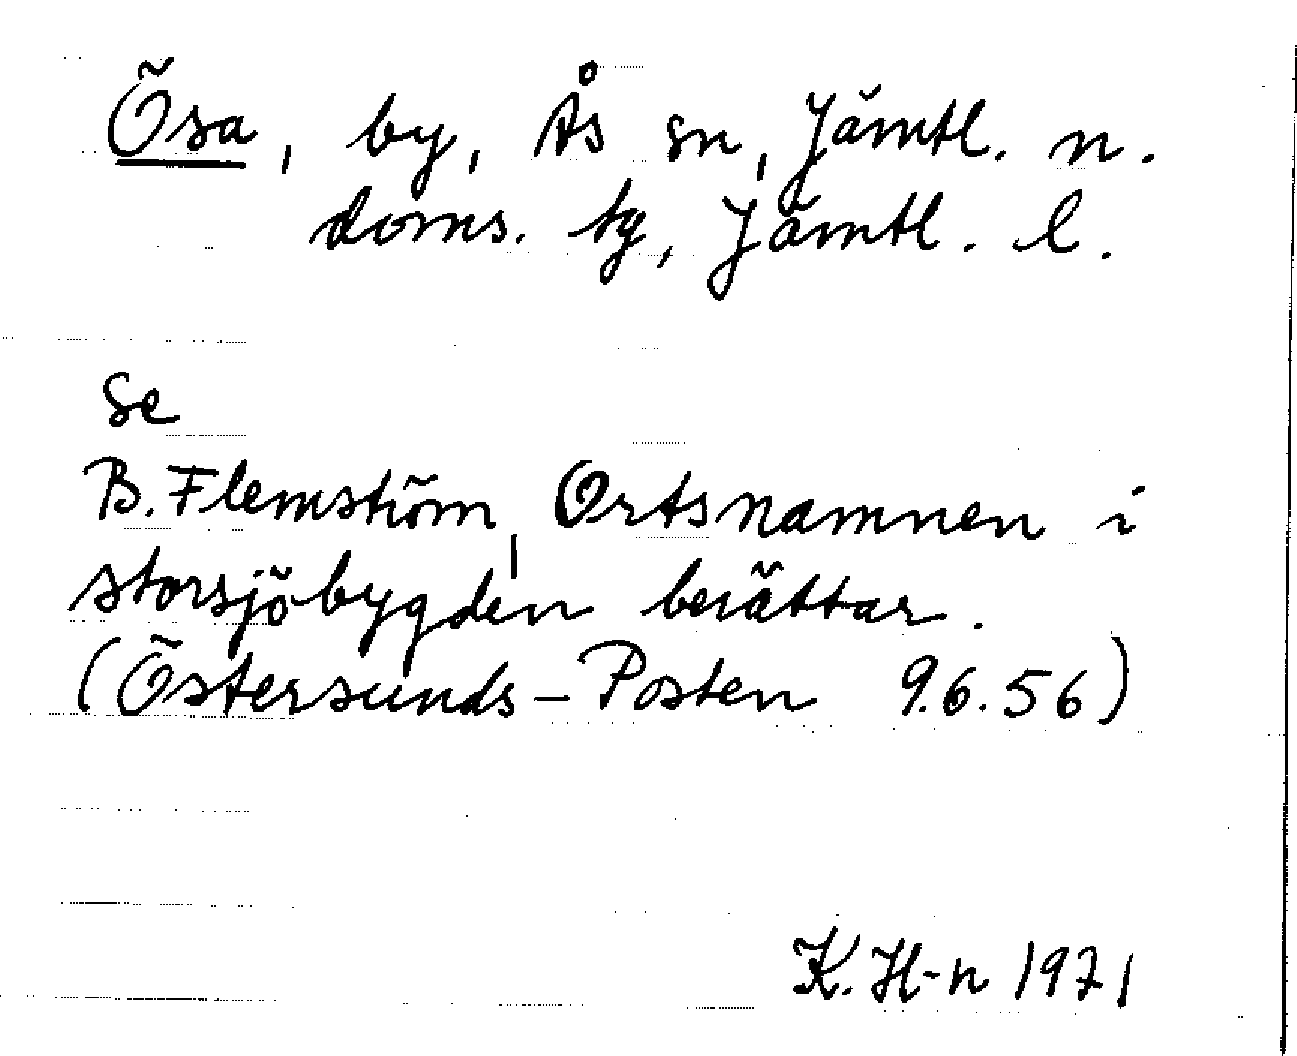 Ösa, by, Ås sn, Jämtl. n.
doms. tg, Jämtl. l.
Se
B. Flemström, Ortsnamnen i
storsjöbygden berättar.
(Östersunds-Posten 9.6.56)
K. H-n 1971